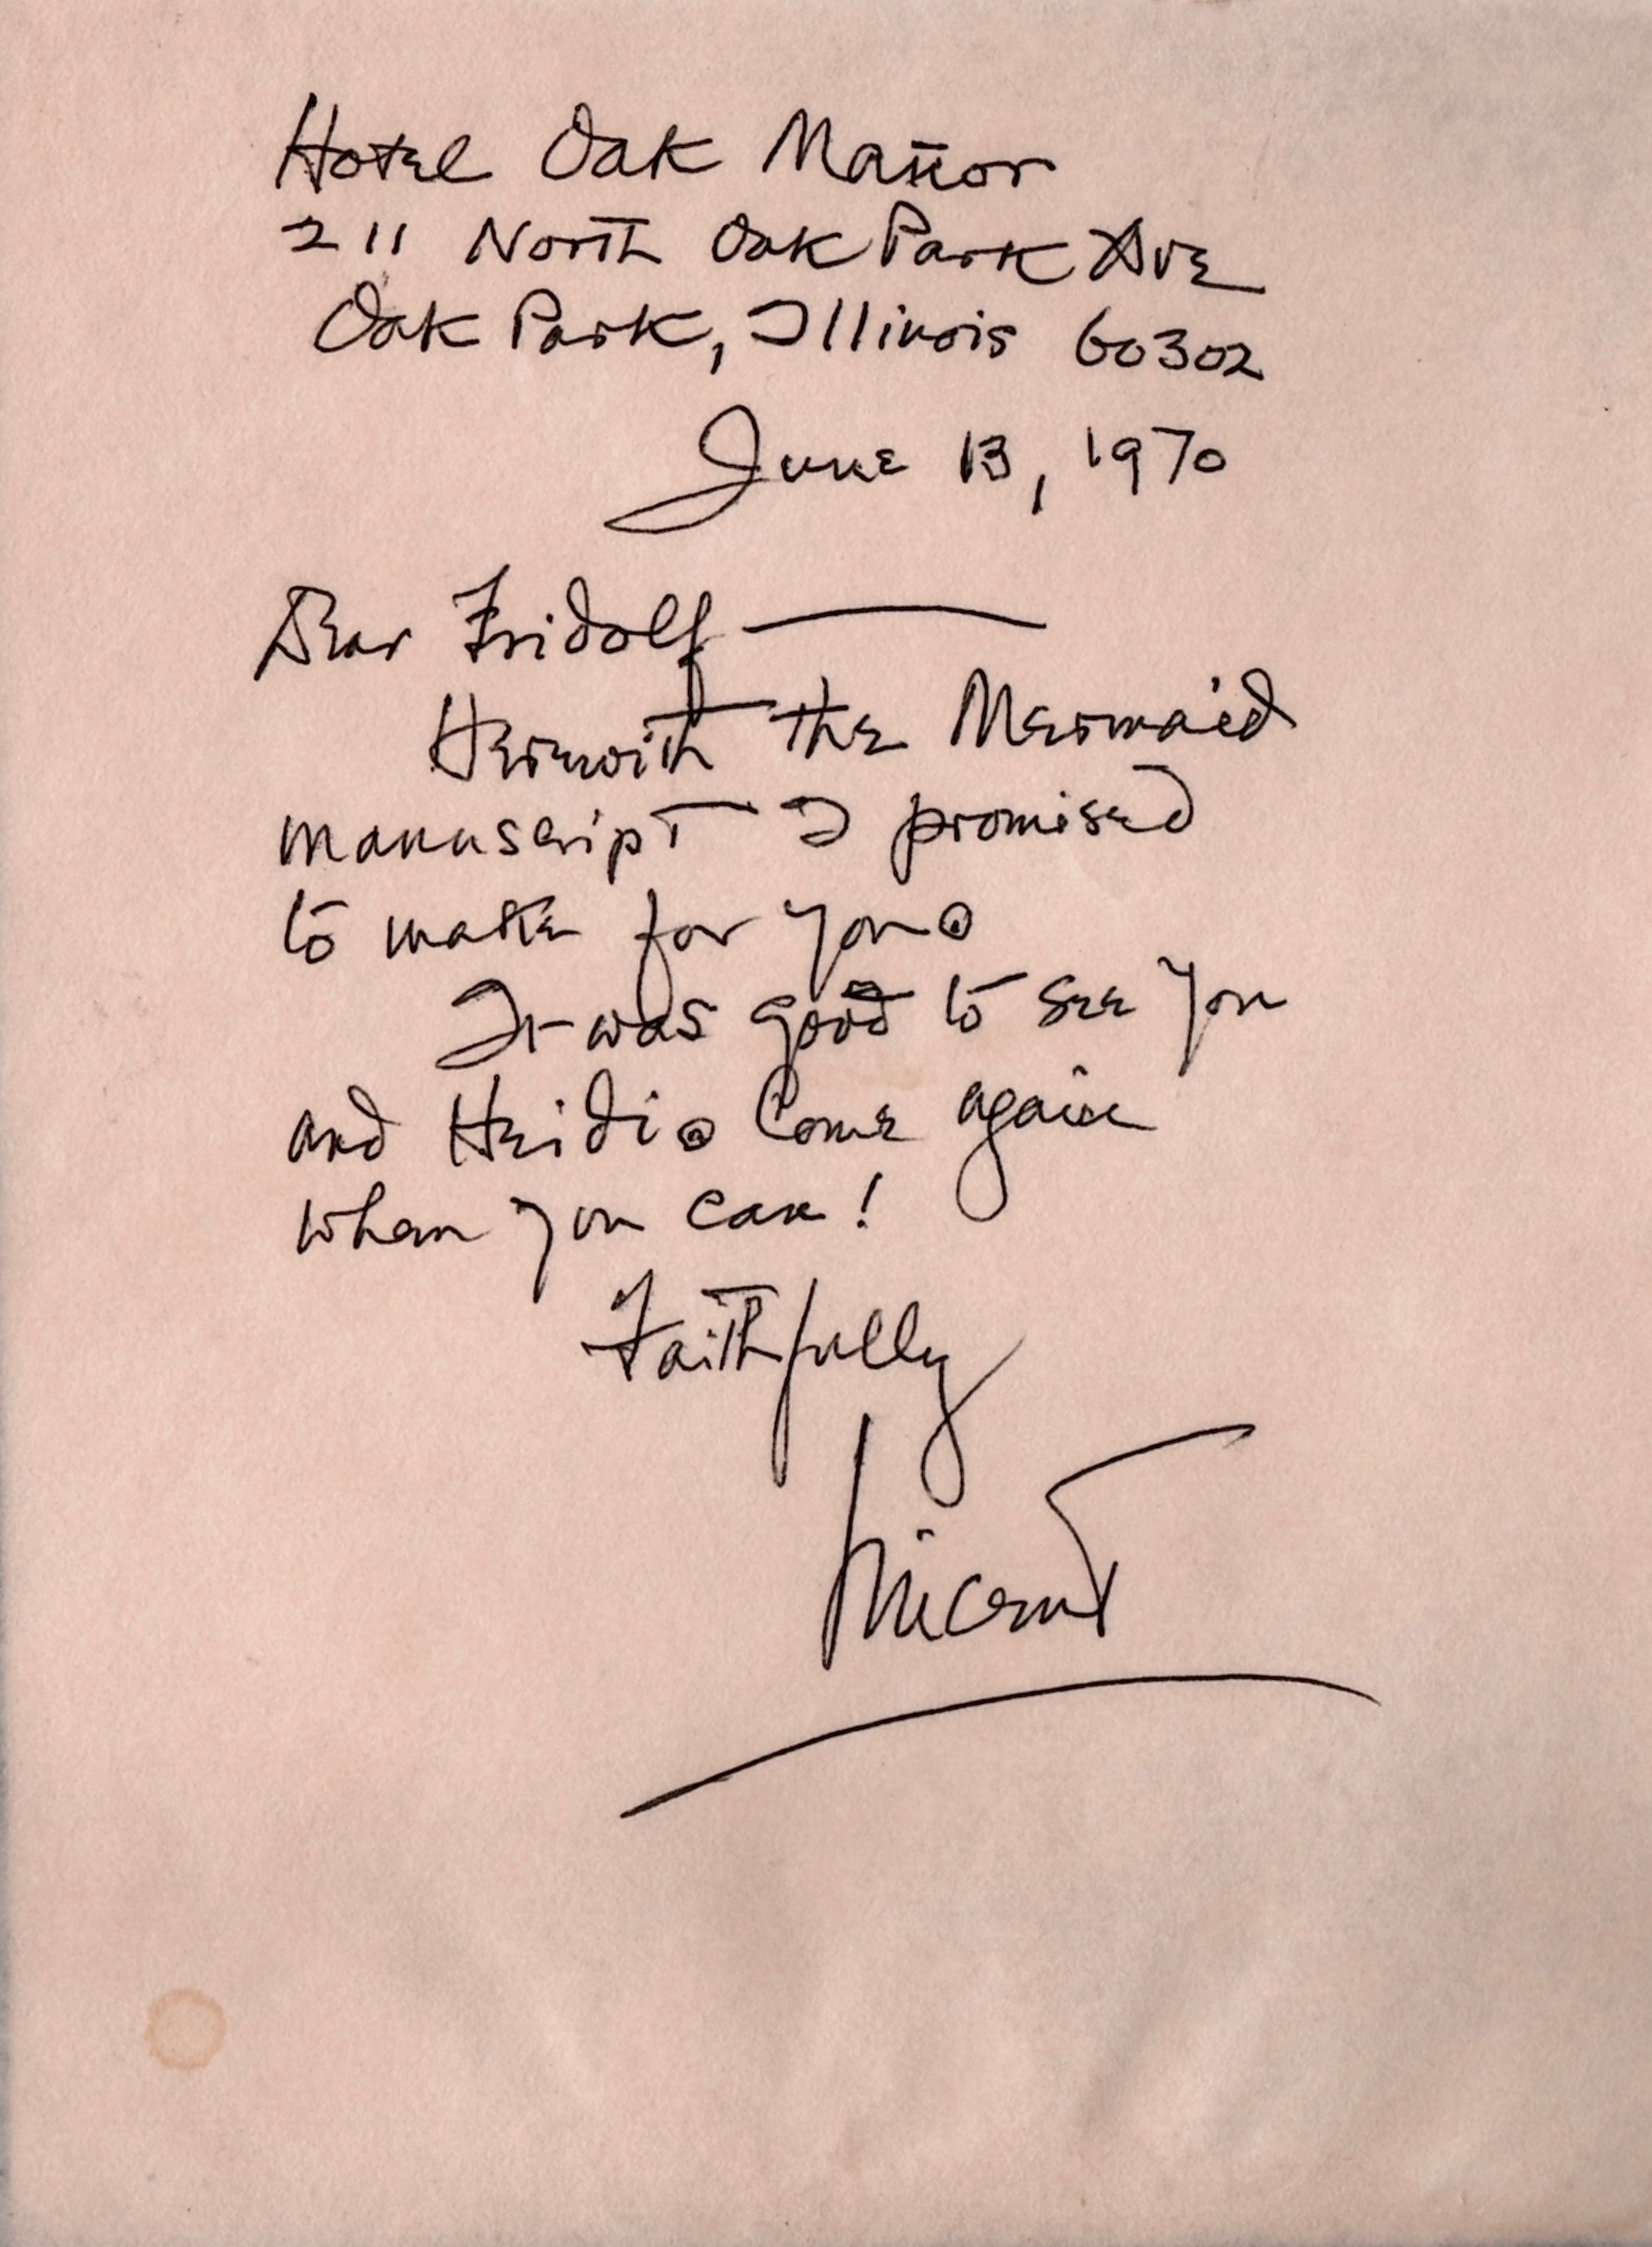 Hotel Oak Manor
211 North Oak Park Ave
Oak Park, Illinois 60302
June 13, 1970
Dear Fridolf —
Herewith the Mermaid
manuscript I promised
to make for you.
It was good to see you
and Heidi. Come again
when you can!
Faithfully
Vincent